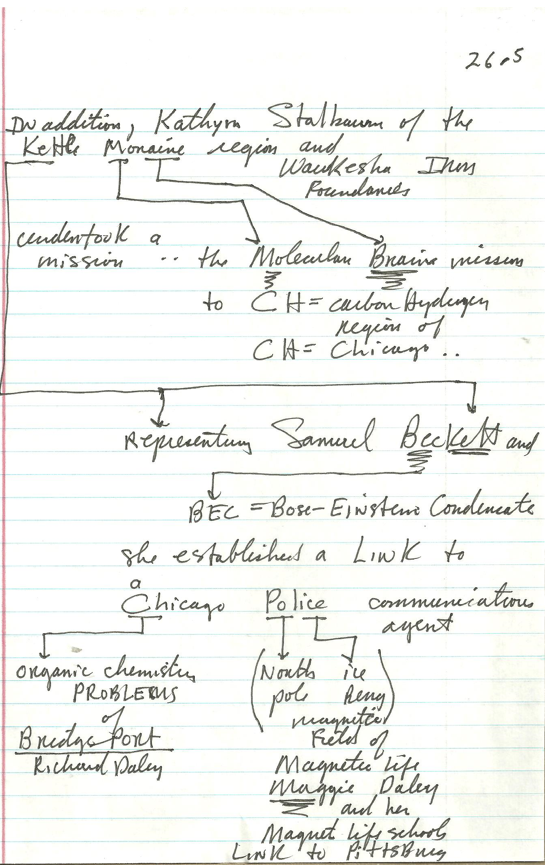 26.5
In addition, Kathyrn Stalbaum of the
Kettle Moraine region and
Waukesha Iron
Foundaries
undertook a
mission .. the Molecular Braine mission
to CH = carbon Hydrogen
region of
CH = Chicago ..
representing Samuel Beckett and
BEC = Bose-Einstein Condensate
she established a LINK to
a
Chicago Police communications
agent
organic chemistry
PROBLEMS
of
Bridge Port
Richard Daley
(North
pole
ice
magnetic
Field of
Magnetic Life
Maggie Daley
and her
Magnet Life schools
LINK to PittsBurg